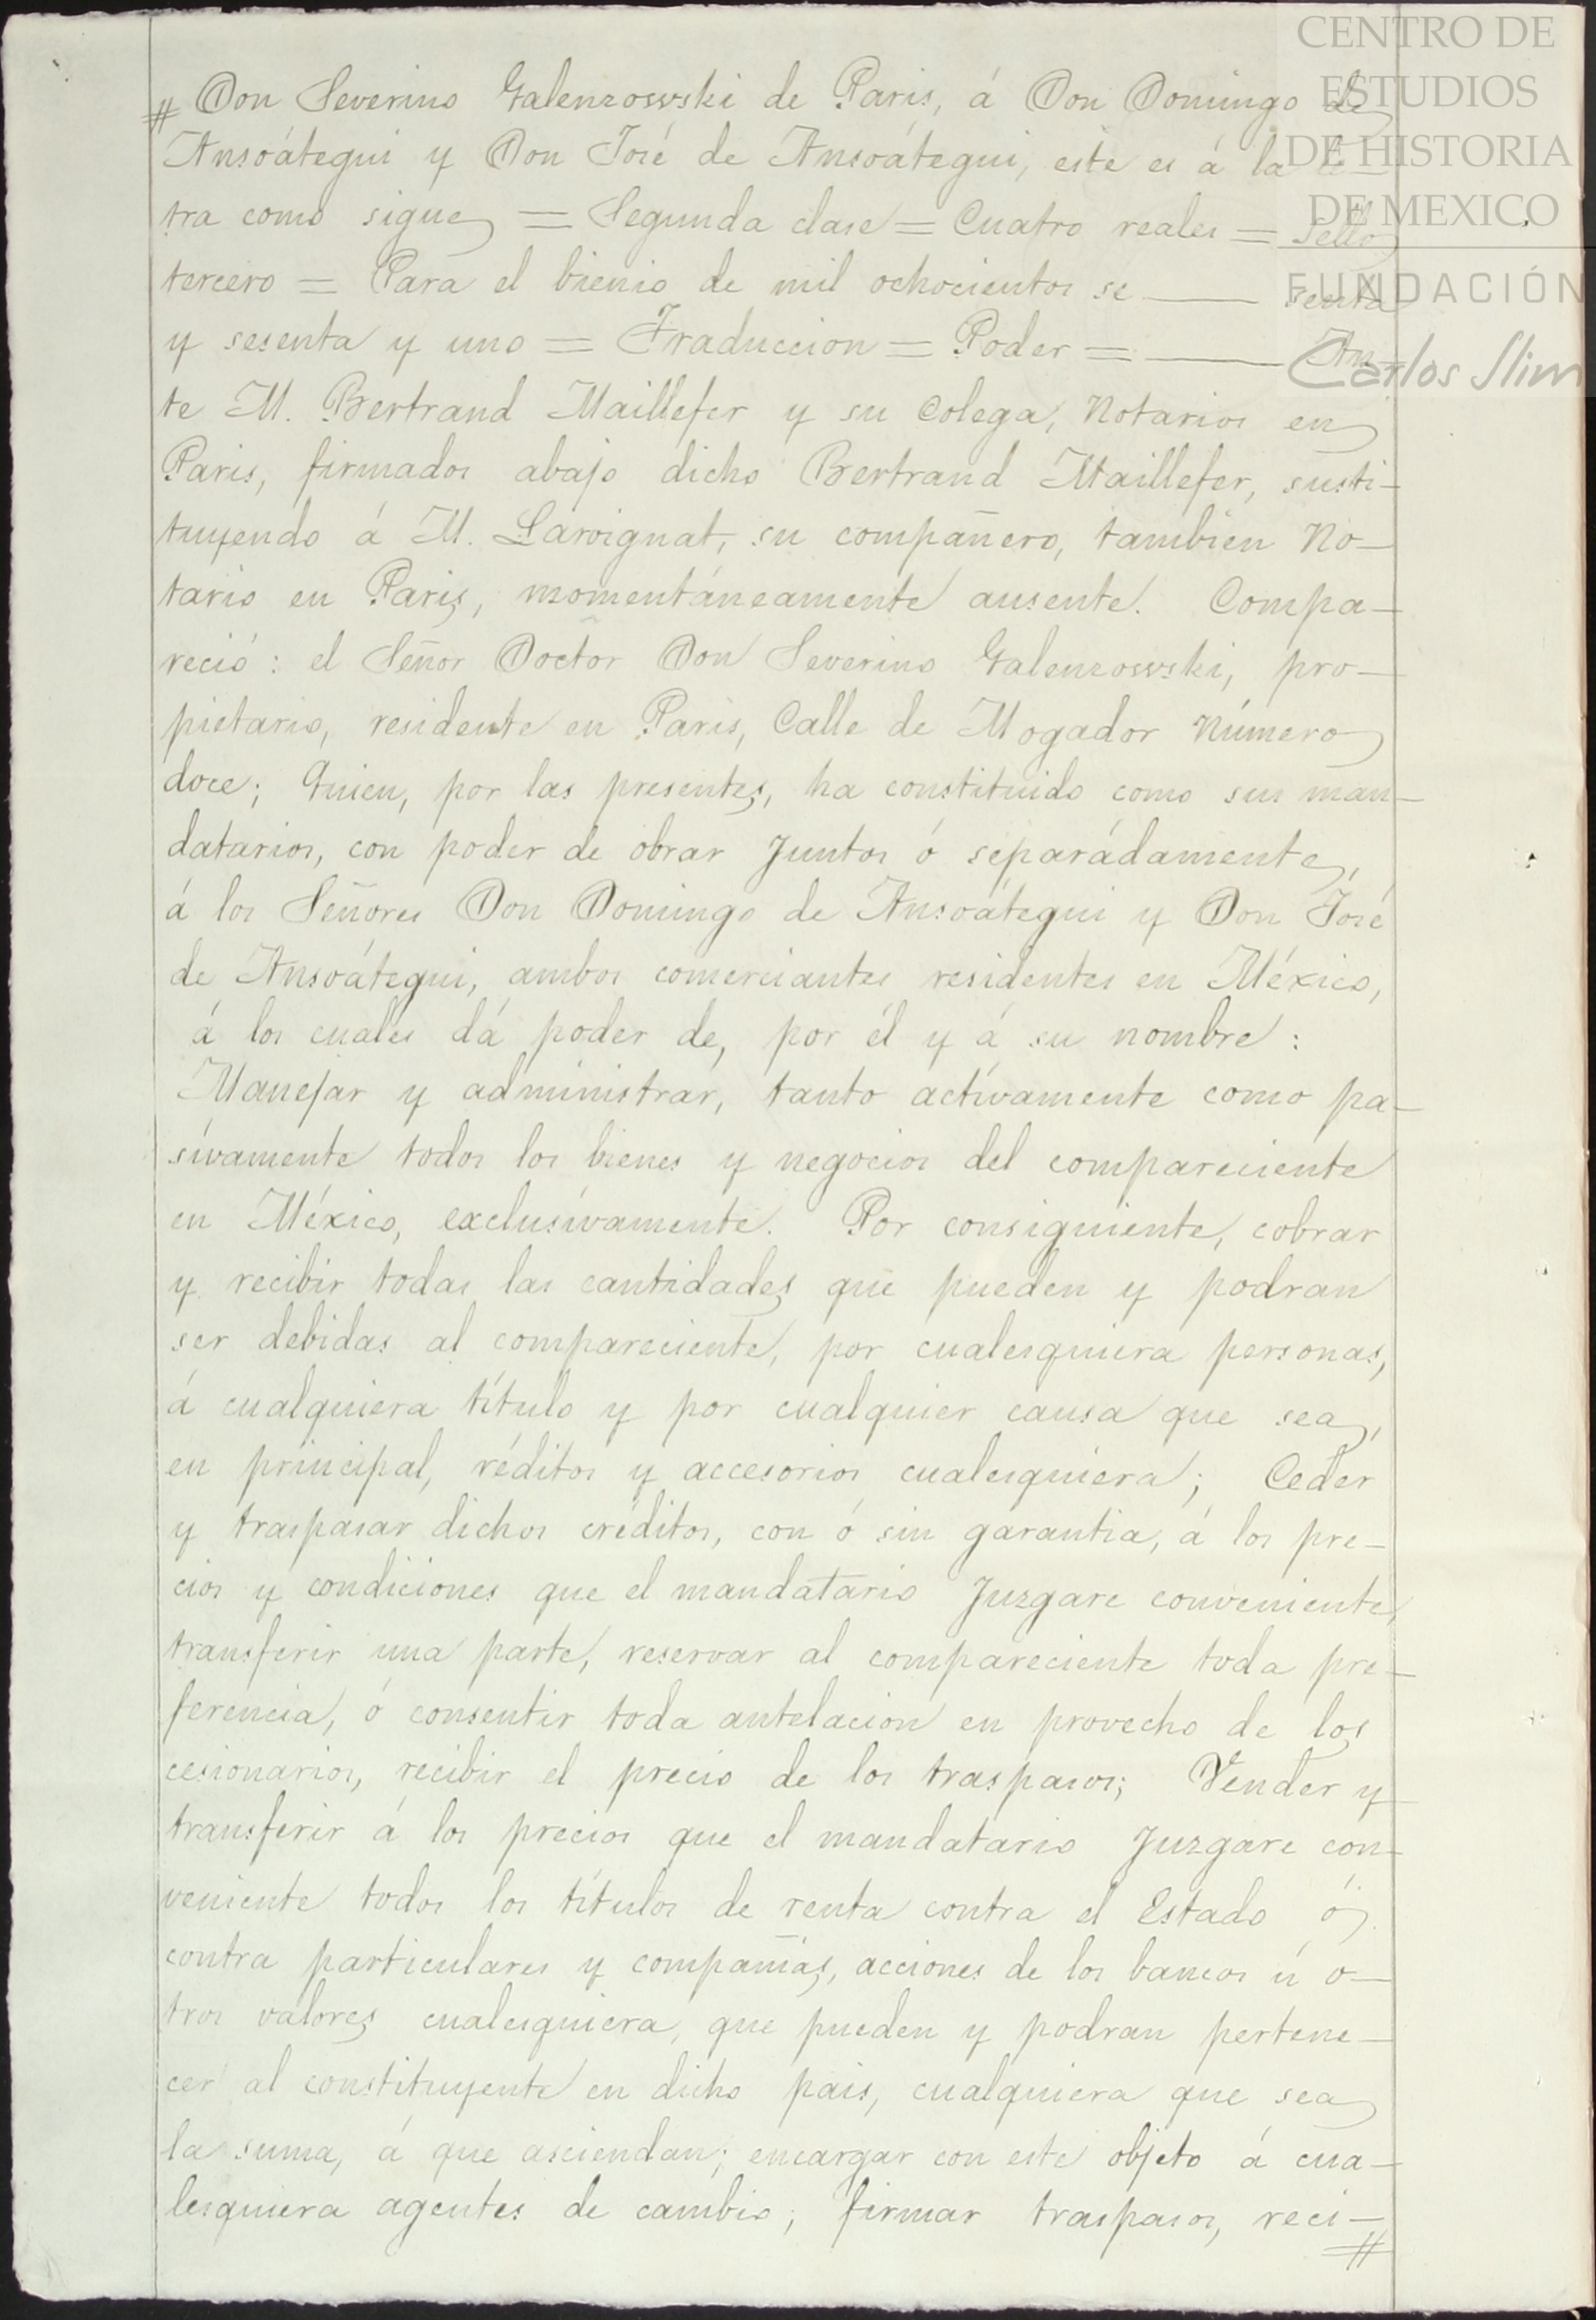 CENTRO DE
ESTUDIOS
DE HISTORIA
DE MEXICO
FUNDACIÓN
Carlos Slim
# Don Severino Galenzowski de Paris, á Don Domingo de
Ansoátegui y Don José de Ansoátegui, este es á la le-
tra como sigue = Segunda clase = Cuatro reales = Sello
tercero = Para el bienio de mil ochocientos se — senta
y sesenta y uno = Traduccion = Poder = — An-
te M. Bertrand Maillefer y su Colega, Notarios en
Paris, firmados abajo dicho Bertrand Maillefer, susti-
tuyendo á M. Lavoignat, su compañero, tambien No-
tario en Paris, momentáneamente ausente. Compa-
reció: el Señor Doctor Don Severino Galenzowski, pro-
pietario, residente en Paris, Calle de Mogador Número
doce; Quien, por las presentes, ha constituido como sus man-
datarios, con poder de obrar Juntos ó separádamente,
á los Señores Don Domingo de Ansoátegui y Don José
de Ansoátegui, ambos comerciantes residentes en México,
á los cuales dá poder de, por él y á su nombre:
Manejar y administrar, tanto actívamente como pa-
sívamente todos los bienes y negocios del compareciente
en México, exclusívamente. Por consiguiente, cobrar
y recibir todas las cantidades que pueden y podran
ser debidas al compareciente, por cualesquiera personas,
á cualquiera título y por cualquier causa que sea,
en principal, réditos y accesorios cualesquiera; Ceder
y traspasar dichos créditos, con ó sin garantia, á los pre-
cios y condiciones que el mandatario Juzgare conveniente,
transferir una parte, reservar al compareciente toda pre-
ferencia, ó consentir toda antelacion en provecho de los
cesionarios, recibir el precio de los traspasos; Vender y
transferir á los precios que el mandatario Juzgare con-
veniente todos los títulos de renta contra el Estado ó
contra particulares y compañías, acciones de los bancos ú o-
tros valores cualesquiera, que pueden y podran pertene-
cer al constituyente en dicho pais, cualquiera que sea
la suma, á que asciendan; encargar con este objeto á cua-
lesquiera agentes de cambio; firmar traspasos, reci-
#